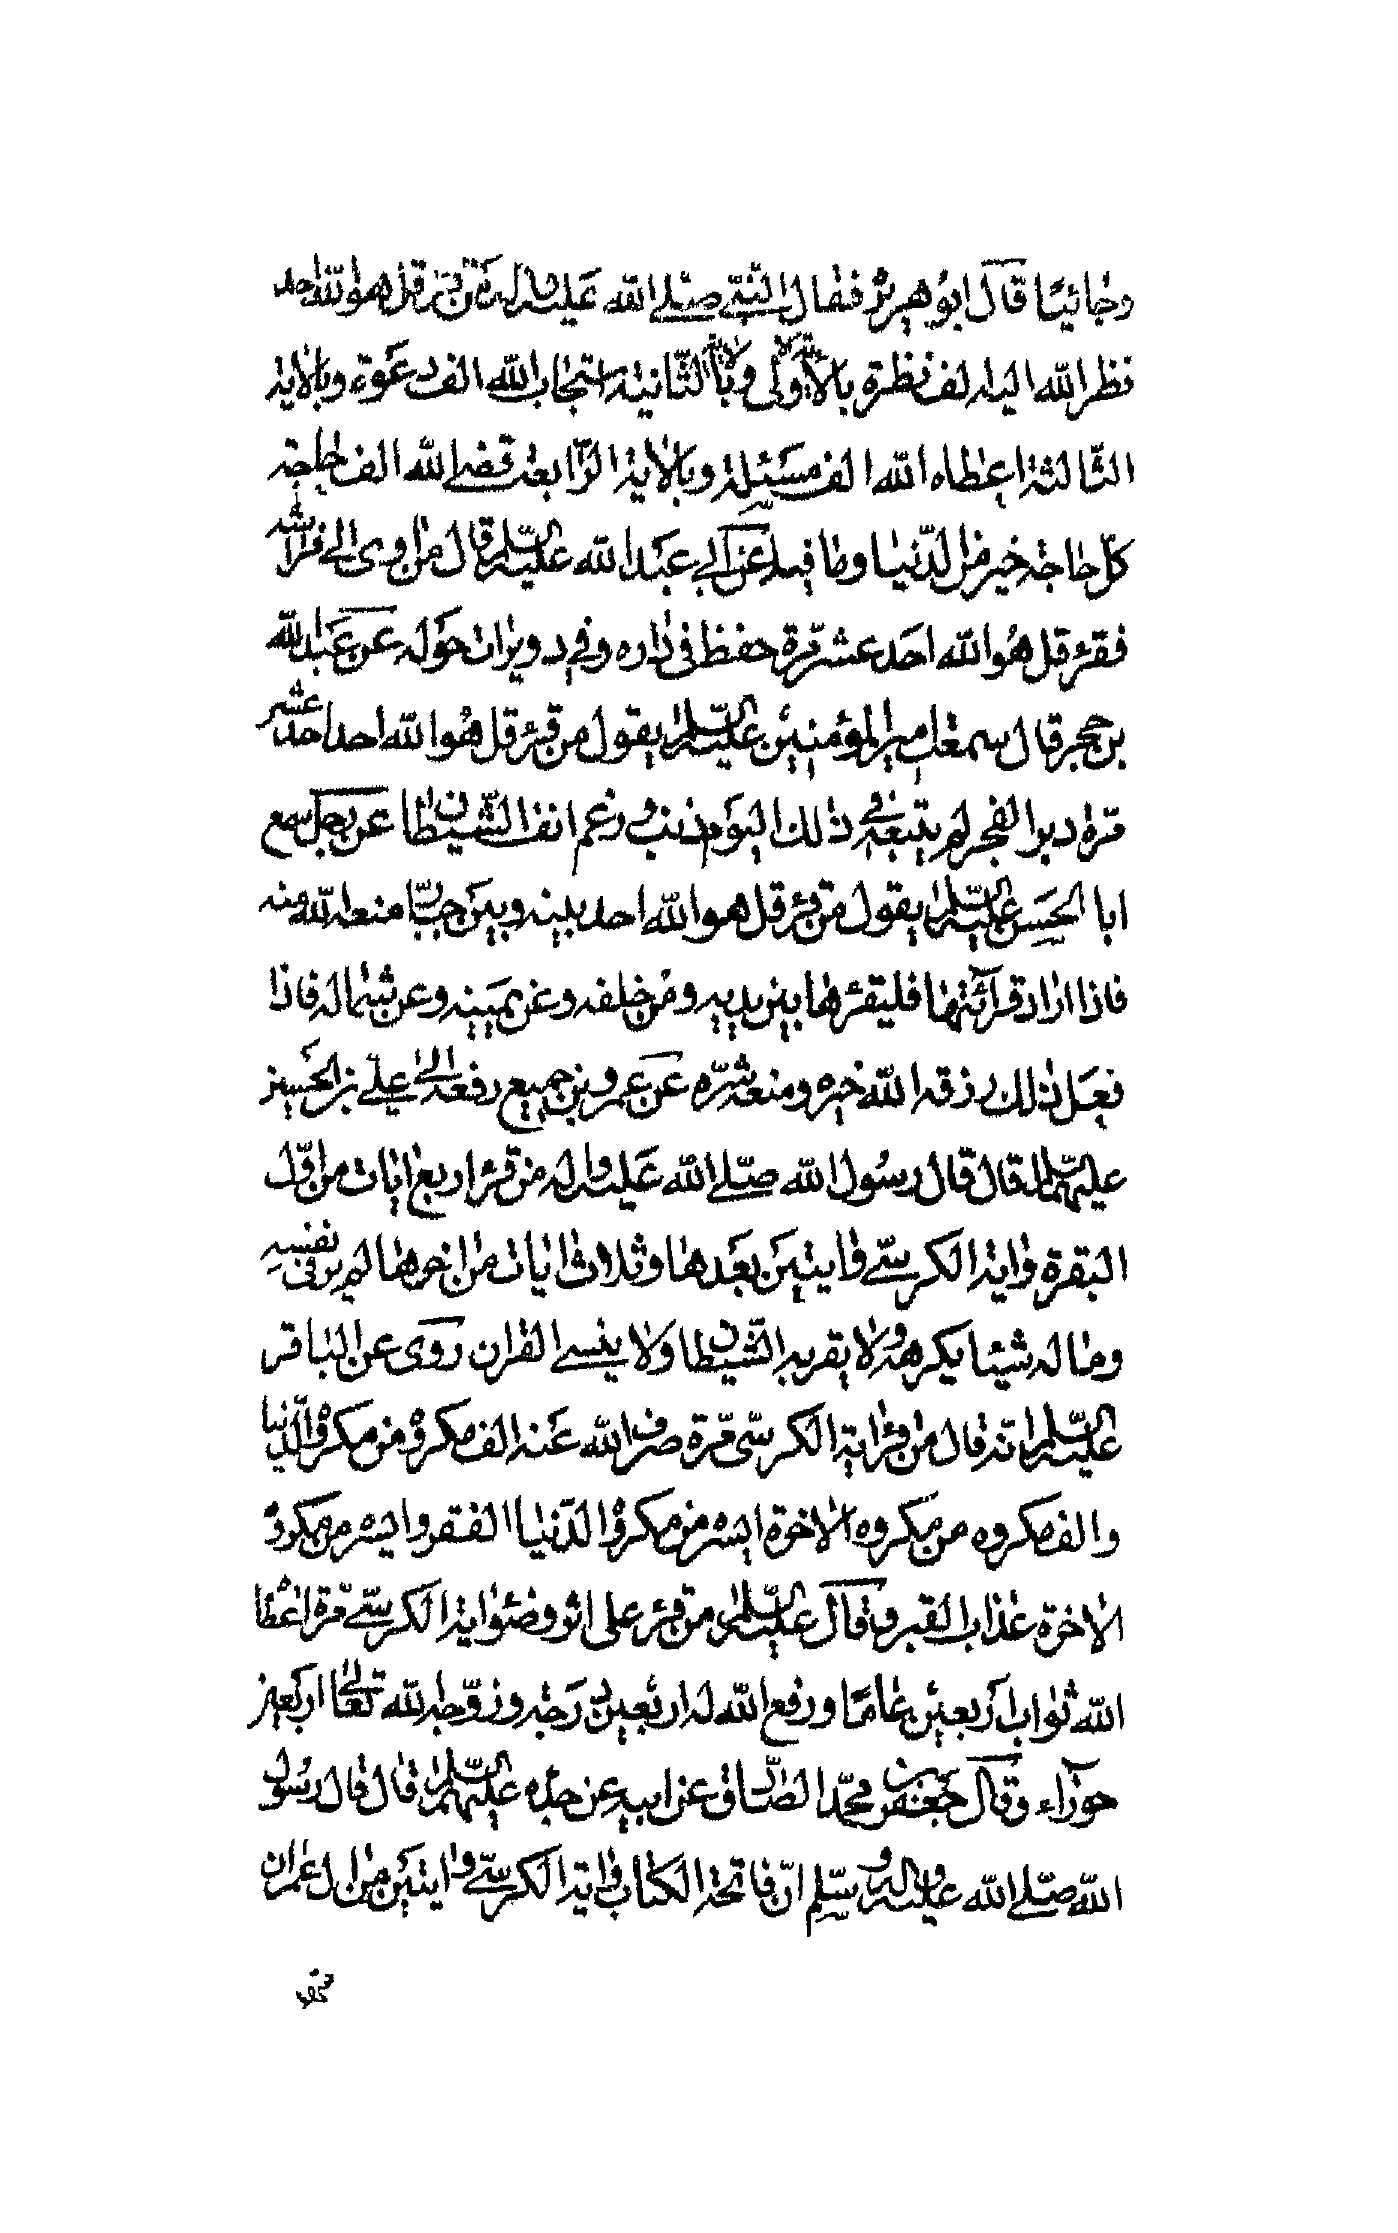 وجائيًا قال ابو هريرة فقال النبّي صلّى الله عليه واله من قرء قل هو الله احد
نظر الله اليه الف نظرة بالاية الاولى وبالاية الثّانية استجاب الله الف دعوة وبالاية
الثّالثة اعطاه الله الف مسئلة وبالاية الرّابعة قضى الله الف حاجة
كلّ حاجة خير من الدّنيا وما فيها عن ابي عبد الله عليه السّلم قال من اوى الى فراشه
فقرء قل هو الله احد عشر مرّة حفظ فى داره وفي دويرات حوله عن عبد الله
بن حجر قال سمعت امير المؤمنين عليه السّلم يقول من قرء قل هو الله احد احد عشر
مرّة دبر الفجر لم يتبعه في ذلك اليوم ذنب ورغم انف الشّيطان عن رجل سمع
ابا الحسن عليه السّلم يقول من قرء قل هو الله احد بينه وبين جبّار منعه الله منه
فاذا اراد قرائتها فليقرءها بين يديه ومن خلفه وعن يمينه وعن شماله فاذا
فعل ذلك رزقه الله خيره ومنعه شرّه عن عمرو بن جميع رفعه الى علي بن الحسين
عليهما السّلم قال قال رسول الله صلّى الله عليه واله من قرء اربع ايات من اوّل
البقرة واية الكرسّي وايتين بعدها وثلاث ايات من اخرها لم ير في نفسه
وماله شيئا يكرهه ولا يقربه الشّيطان ولا ينسى القران روى عن الباقر
عليه السّلم انّه قال من قرء اية الكرسّى مرّة صرف الله عنه الف مكروه من مكروه الدّنيا
والف مكروه من مكروه الاخرة ايسر من مكروه الدّنيا الفقر وايسر من مكروه
الاخرة عذاب القبر وقال عليه السّلم من قرء على اثر وضوء اية الكرسّي مرّة اعطاه
الله ثواب اربعين عامًا ورفع الله له اربعين درجة وزوّجه الله تعالى اربعين
حوراء وقال جعفر بن محمّد الصّادق عن ابيه عن جدّه عليهم السّلم قال قال رسول
الله صلّى الله عليه واله وسلّم انّ فاتحة الكتاب واية الكرسّي وايتين من ال عمران